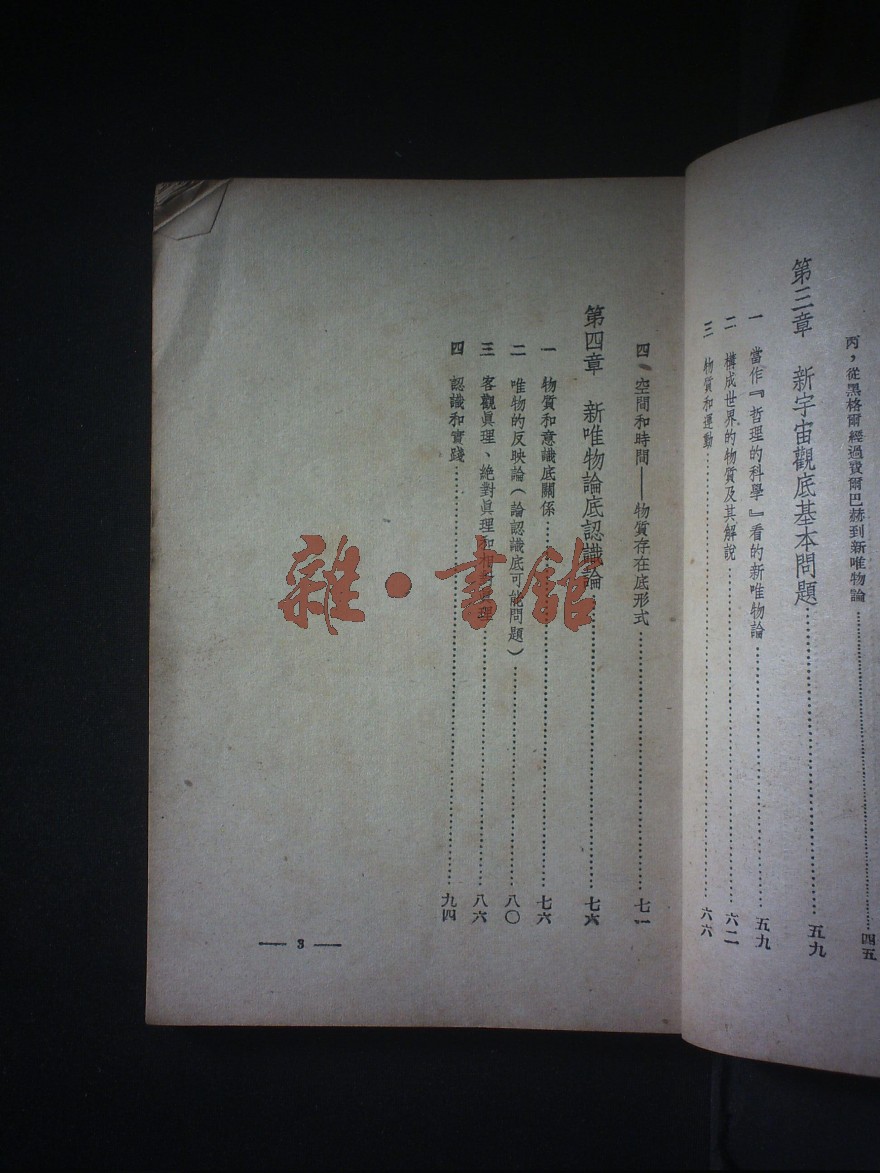 丙，從黑格爾經過費爾巴赫到新唯物論……四五
第三章　新宇宙觀底基本問題……五九
一　當作『哲理的科學』看的新唯物論……五九
二　構成世界的物質及其解說……六二
三　物質和運動……六六
四　空間和時間——物質存在底形式……七一
第四章　新唯物論底認識論……七六
一　物質和意識底關係……七六
二　唯物的反映論（論認識底可能問題）……八〇
三　客觀眞理、絕對眞理和相對眞理……八六
四　認識和實踐……九四
— 3 —
雜·書館